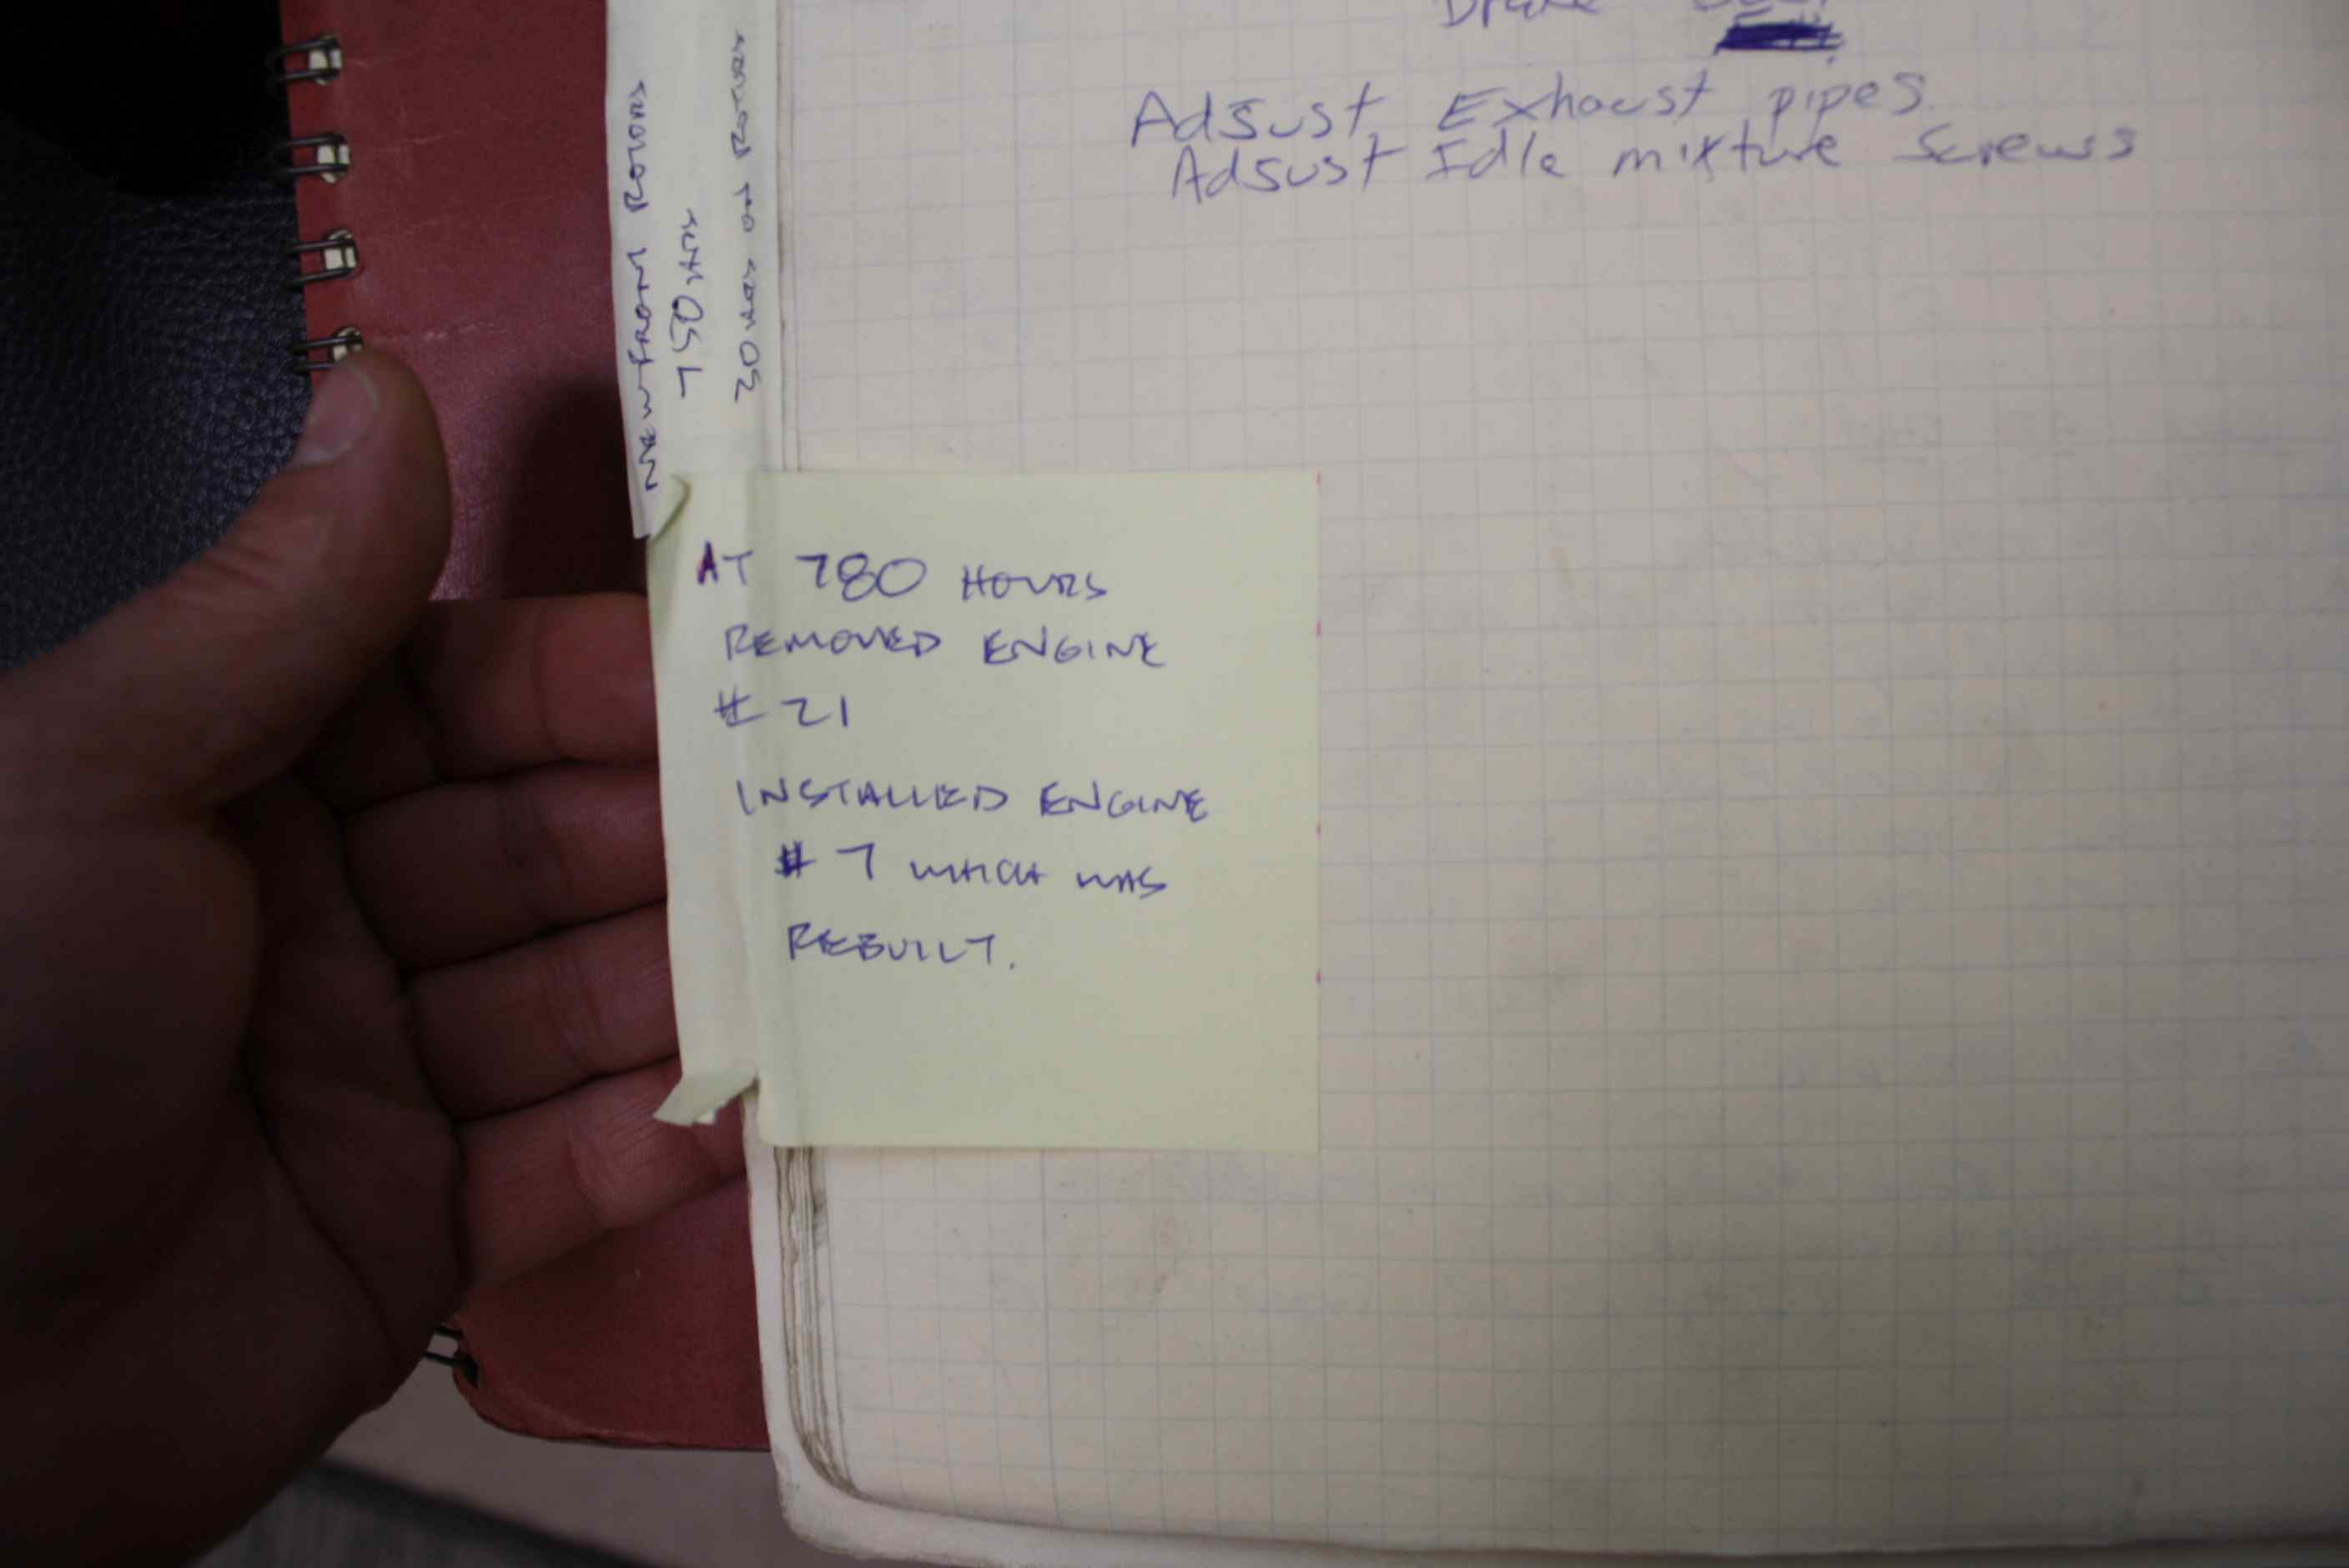 Adjust Exhaust pipes.
Adjust Idle mixture screws
NEW FRONT ROTORS
750 HRS
30 HRS ON ROTORS
AT 780 HOURS
REMOVED ENGINE
# 21
INSTALLED ENGINE
# 7 WHICH WAS
REBUILT.